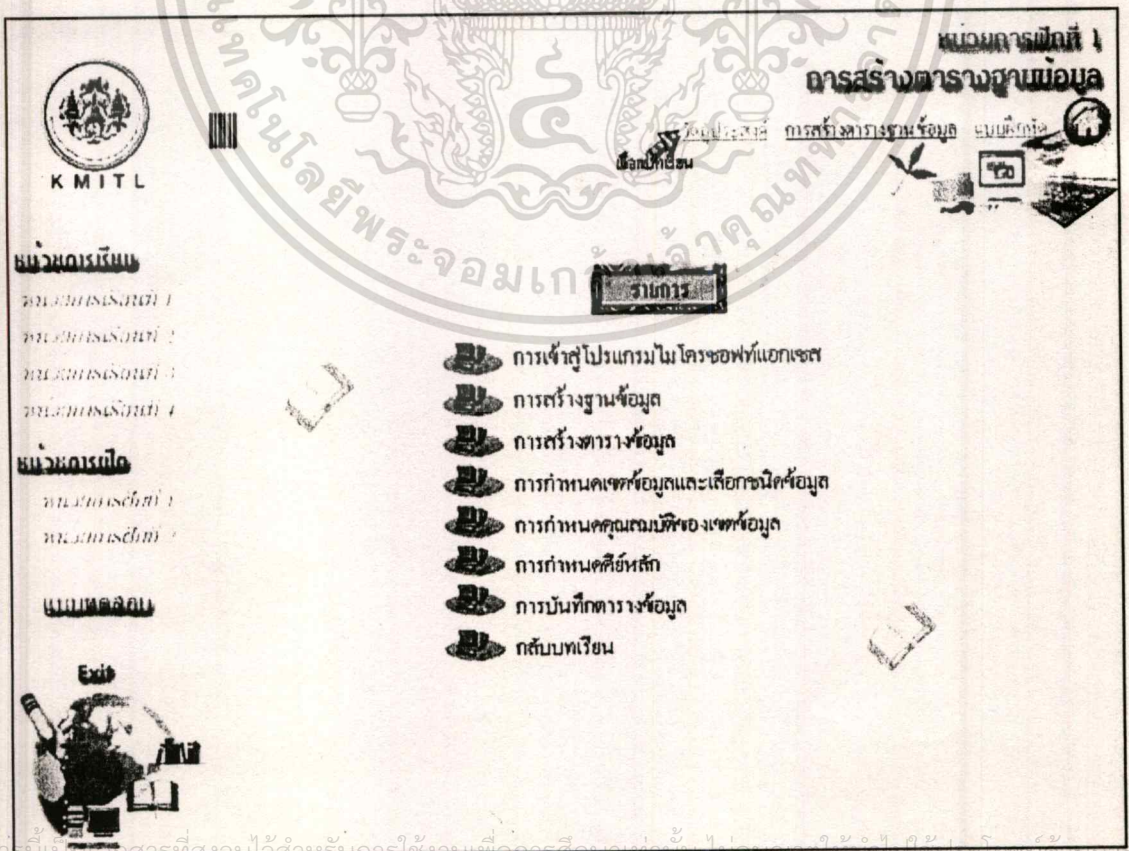 หน่วยการฝึกที่ 1
การสร้างตารางฐานข้อมูล
วัตถุประสงค์ การสร้างตารางฐานข้อมูล แบบฝึกหัด
เลือกบทเรียน
KMITL
หน่วยการเรียน
หน่วยการเรียนที่ 1
หน่วยการเรียนที่ 2
หน่วยการเรียนที่ 3
หน่วยการเรียนที่ 4
หน่วยการฝึก
หน่วยการฝึกที่ 1
หน่วยการฝึกที่ 2
แบบทดสอบ
Exit
รายการ
การเข้าสู่โปรแกรมไมโครซอฟท์แอกเซส
การสร้างฐานข้อมูล
การสร้างตารางข้อมูล
การกำหนดเขตข้อมูลและเลือกชนิดข้อมูล
การกำหนดคุณสมบัติของเขตข้อมูล
การกำหนดคีย์หลัก
การบันทึกตารางข้อมูล
กลับบทเรียน